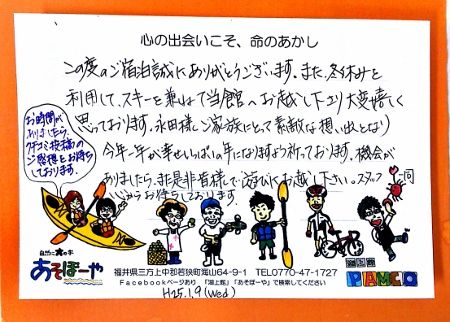 心の出会いこそ、命のあかし
この度のご宿泊誠にありがとうございます。また、冬休みを
利用して、スキーを兼ねて当館へお越し下さり大変嬉しく
思っております。永田様ご家族にとって素敵な想い出となり
今年一年が幸せいっぱいの年になりますよう祈っております。機会が
ありましたら、是非皆様で遊びにお越し下さい。スタッフ一同
心からお待ちしております
お時間が
ありましたら、
クチコミ投稿の
ご感想をお待ち
しております。
自然に海の幸
あそぼーや
福井県三方上中郡若狭町海山64-9-1 TEL0770-47-1727
Facebookページあり 「湖上館」「あそぼーや」で検索してください
PAMCO
H25.1.9(Wed)